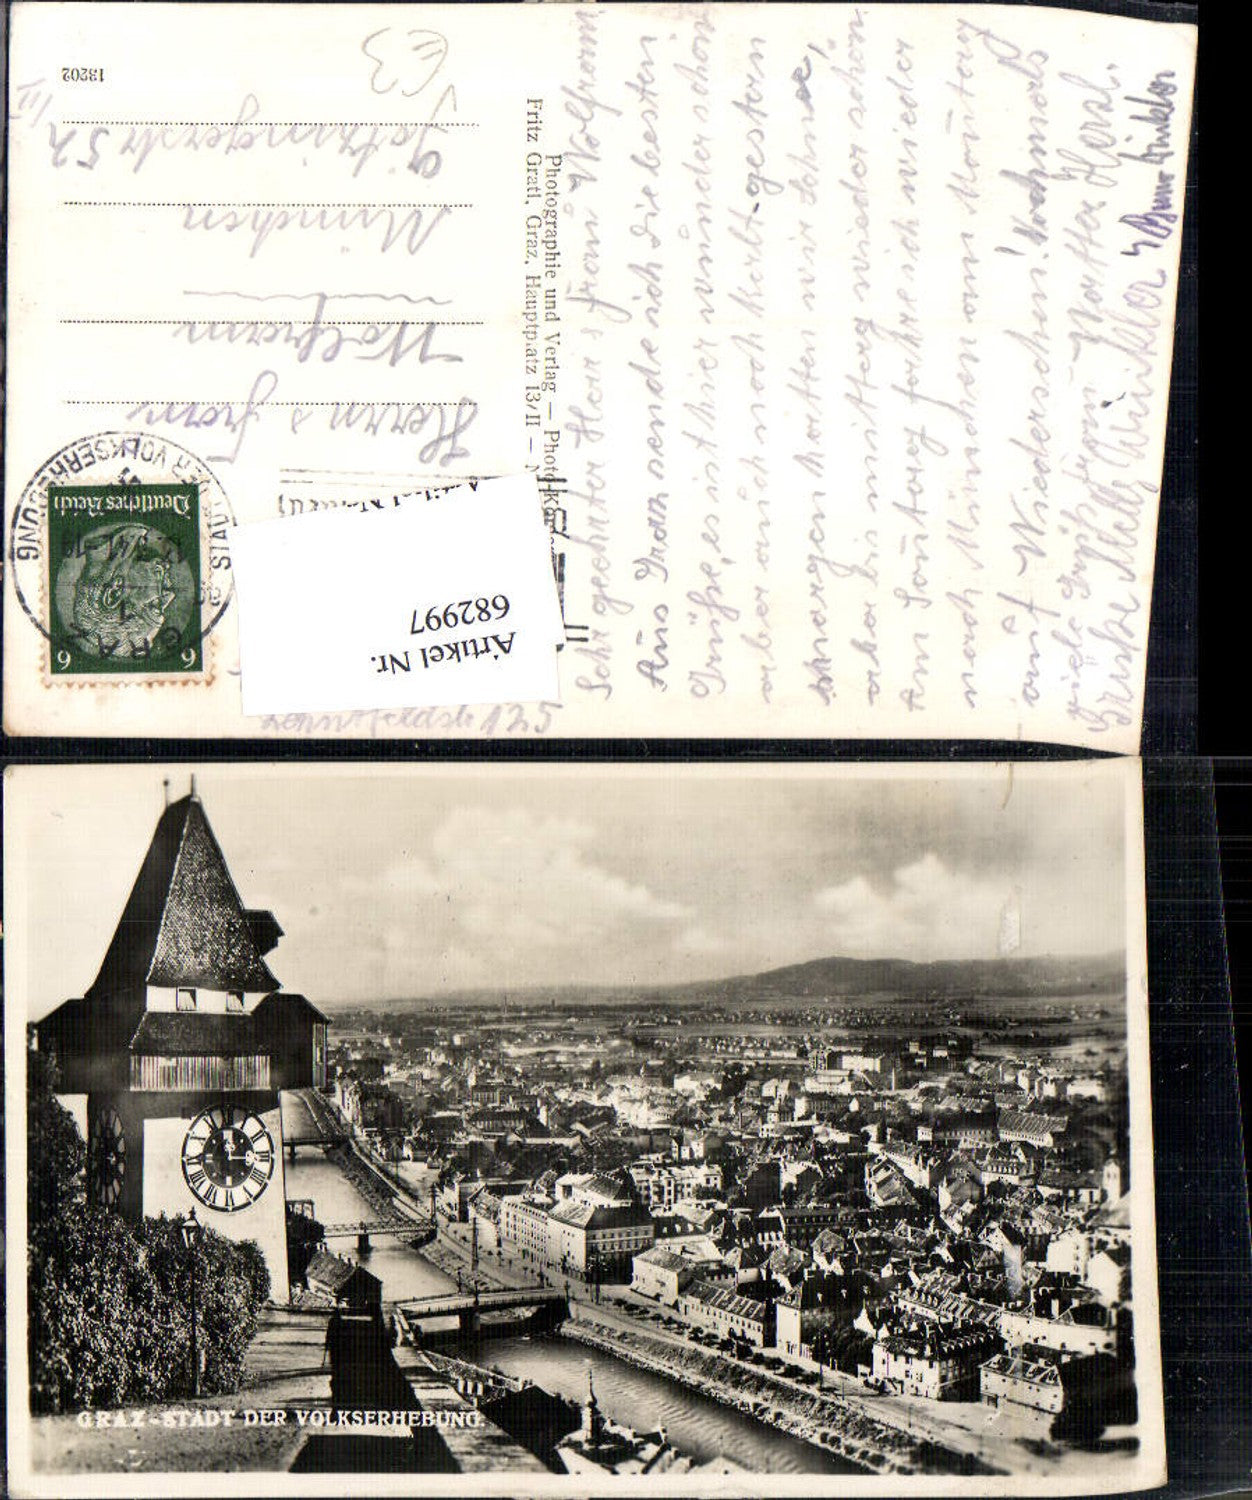 13202
€3
Herrn & Frau
Wolfram
München
Götzingerstr 52
/III
GRAZ 1
STADT DER VOLKSERHEBUNG
Deutsches Reich
6 6
Photographie und Verlag —
Fritz Gratl, Graz, Hauptplatz 13/II —
Artikel Nr.
682997
125
Sehr geehrter Herr & Frau Wolfram
Aus Graz sende ich die besten
Grüße, es ist hier wunderschön
aber auch noch kalt - gestern
morgen hatten wir Schnee,
aber bis mittag wieder schön
Am Sontag fahre ich wieder
nach München am Montag
auf Wiederschaun! Nochmals
viele Grüße
Grüße Melly Winkler & Bruno Winkler
GRAZ - STADT DER VOLKSERHEBUNG.